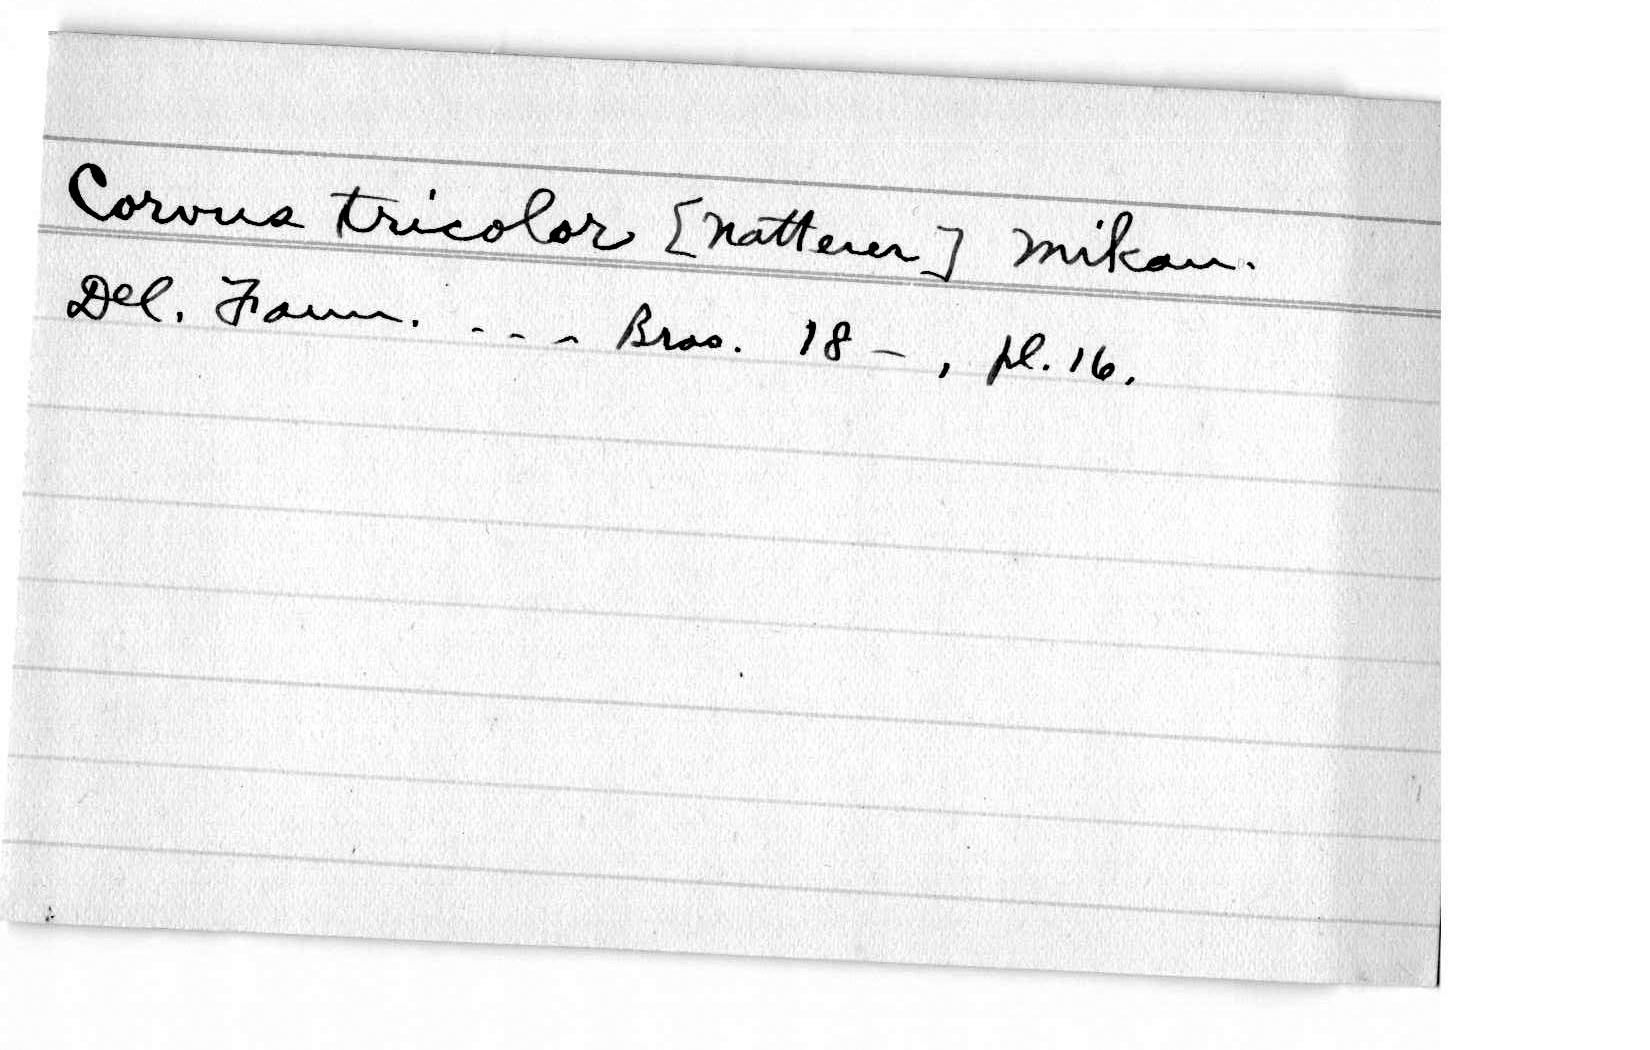 Corvus tricolor [Natterer] Mikan.
Del. Faun. - - - Bras. 18 - , pl. 16.